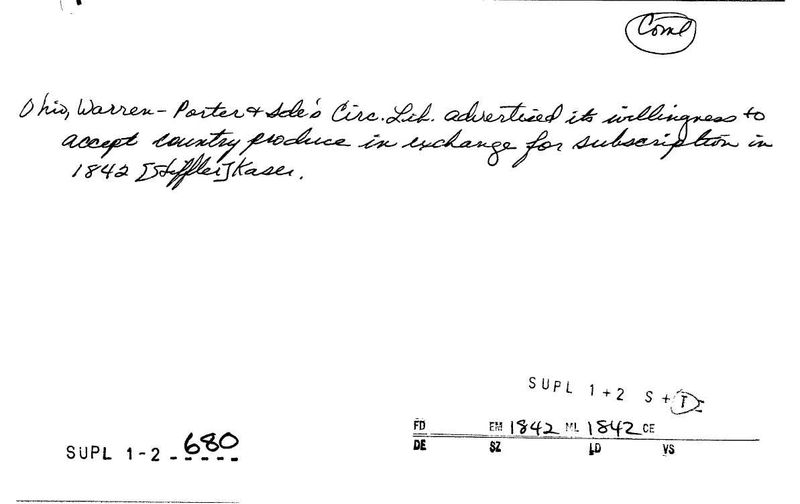 Coml
Ohio, Warren - Porter & Ide's Circ. Lib. advertised its willingness to
accept country produce in exchange for subscription in
1842 [Stiffler] Kaser.
SUPL 1+2 S + T
FD EM 1842 ML 1842 CE
DE SZ LD VS
SUPL 1-2 - 680